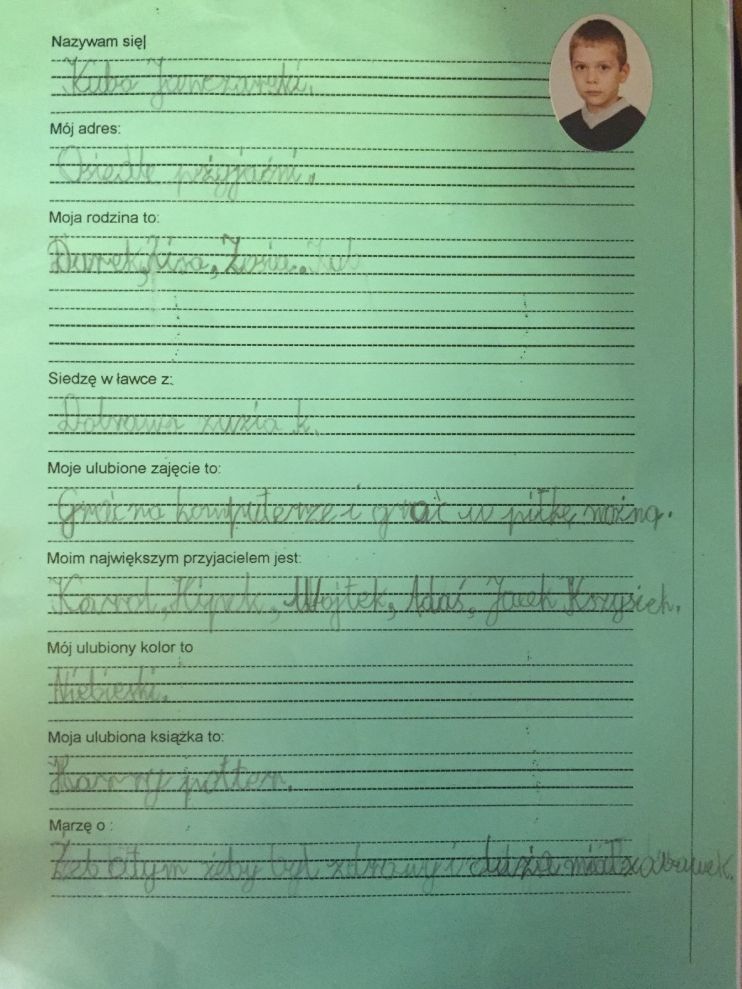 Nazywam się
Kuba Janczarski.
Mój adres:
Osiedle pżyjaźni.
Moja rodzina to:
Darek, Liza, Zosia.
Siedzę w ławce z:
Dobrawa zuzia k.
Moje ulubione zajęcie to:
Grać na komputerze i grać w piłkę nożną.
Moim największym przyjacielem jest:
Karol, Hipek, Wojtek, Adaś, Jacek Krzysiek.
Mój ulubiony kolor to
Niebieski.
Moja ulubiona książka to:
Harry potter.
Marzę o :
żeby był zdrowy i dużo miał zabawek.